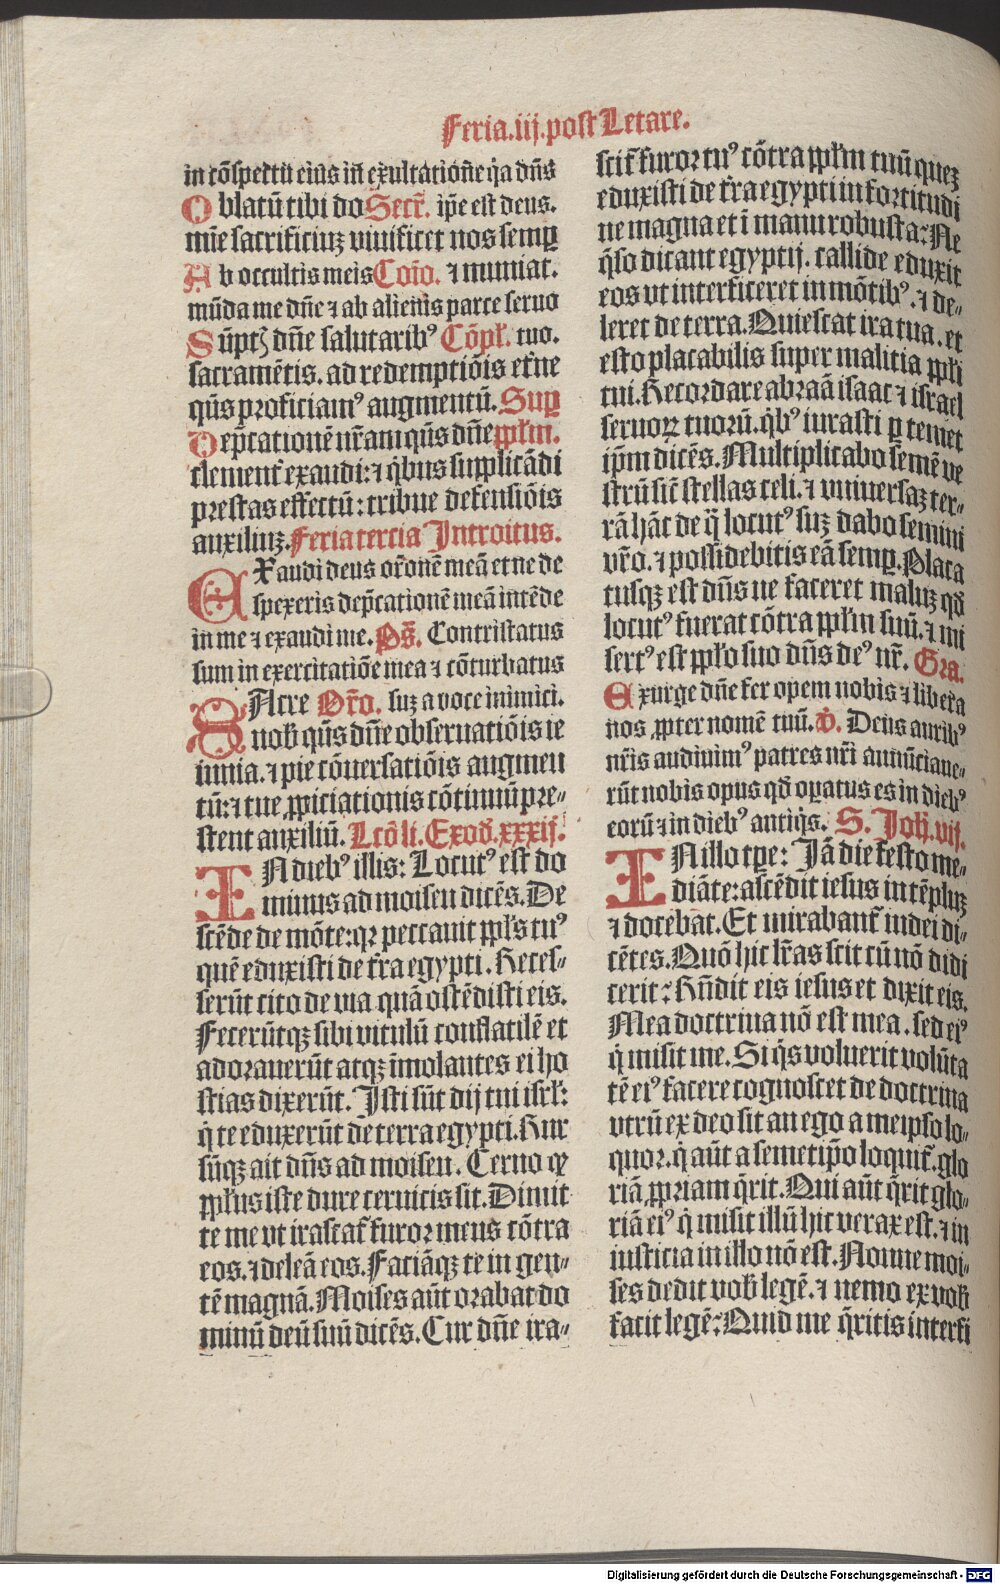 Feria.iij.post Letare.
in cōspectu eius iñ exultatiōne q̇a dñs
Oblatū tibi do Secř. ip̄e est deus.
mīe sacrificiuꝫ viuificet nos semꝑ
Ab occultis meis Cōio. ⁊ muniat.
mūda me dñe ⁊ ab alienis parce seruo
Sūptꝭ dñe salutaribꝰ Cōpł. tuo.
sacramētis. ad redemptiōis etne
qūs proficiamꝰ augmentū. Suꝑ
Dep̄cationē nr̄am qūs dñe pp̄łm.
clement̄ exaudi: ⁊ q̇bus supplicādi
prestas effectū: tribue defensiōis
auxiliuꝫ. Feria tercia Introitus.
EXaudi deus or̄onē meā et ne de
spexeris dep̄cationē meā intēde
in me ⁊ exaudi me. Ps̄. Contristatus
sum in exercitatiōe mea ⁊ cōturbatus
SAcre Or̄o. suꝫ a voce inimici.
nob̄ qūs dñe obseruatiōis ie
iunia. ⁊ pie cōuersatiōis augmen
tū: ⁊ tue ꝓpiciationis cōtinuū pre⸗
stent auxiliū. Lcō li. Exod̄. xxxij.
IN diebꝰ illis: Locutꝰ est do
minus ad moisen dicēs. De
scēde de mōte: qꝛ peccauit pp̄łs tuꝰ
quē eduxisti de tr̄a egypti. Reces⸗
serūt cito de via quā ostēdisti eis.
Fecerūtqꝫ sibi vitulū conflatilē et
adorauerūt atqꝫ īmolantes ei ho
stias dixerūt. Isti sūt dij tui isrł:
q̇ te eduxerūt de terra egypti. Rur
sūqꝫ ait dñs ad moisen. Cerno ꝙ
pp̄łus iste dure ceruicis sit. Dimit
te me vt irascat̄ furor meus cōtra
eos. ⁊ deleā eos. Faciāqꝫ te in gen⸗
tē magnā. Moises aūt orabat do
minū deū suū dicēs. Cur dñe ira⸗
scit̄ furor tuꝰ cōtra pp̄łm tuū queꝫ
eduxisti de tr̄a egypti in fortitudi
ne magna et ī manu robusta? Ne
q̄so dicant egyptij. callide eduxit
eos vt interficeret in mōtibꝰ. ⁊ de⸗
leret de terra. Quiescat ira tua. et
esto placabilis super malitia pp̄łi
tui. Recordare abraā isaac ⁊ israel
seruoꝝ tuorū. q̇bꝰ iurasti ꝑ temet
ip̄m dicēs. Multiplicabo semē ve
strū sic̄ stellas celi. ⁊ vniuersaꝫ ter⸗
rā hāc de q̄ locutꝰ suꝫ dabo semini
vr̄o. ⁊ possidebitis eā semꝑ. Placa
tusqꝫ est dñs ne faceret maluꝫ qd̄
locutꝰ fuerat cōtra pp̄łm suū. ⁊ mi
sertꝰ est pp̄ło suo dñs deꝰ nr̄. Gra.
Exurge dñe fer opem nobis ⁊ libera
nos ꝓpter nomē tuū. V̇. Deus auribꝰ
nr̄is audiuimꝰ patres nr̄i annūciaue⸗
rūt nobis opus qd̄ oꝑatus es in diebꝰ
eorū ⁊ in diebꝰ antiq̇s. S. Joh̄. vij.
IN illo tp̄e: Jā die festo me⸗
diāte: ascēdit iesus in tēpluꝫ
⁊ docebat. Et mirabant̄ iudei di⸗
cētes. Quō hic lr̄as scit cū nō didi
cerit? Rn̄dit eis iesus et dixit eis.
Mea doctrina nō est mea. sed eiꝰ
q̇ misit me. Si q̇s voluerit volūta
tē eiꝰ facere cognoscet de doctrina
vtrū ex deo sit an ego a meipso lo⸗
quor. q̇ aūt a semetip̄o loquit̄. glo
riā ꝓpriam q̄rit. Qui aūt q̄rit glo⸗
riā eiꝰ q̇ misit illū hic verax est. ⁊ in
iusticia in illo nō est. Nonne moi⸗
ses dedit vob̄ legē. ⁊ nemo ex vob̄
facit legē? Quid me q̄ritis interfi
Digitalisierung gefördert durch die Deutsche Forschungsgemeinschaft - DFG